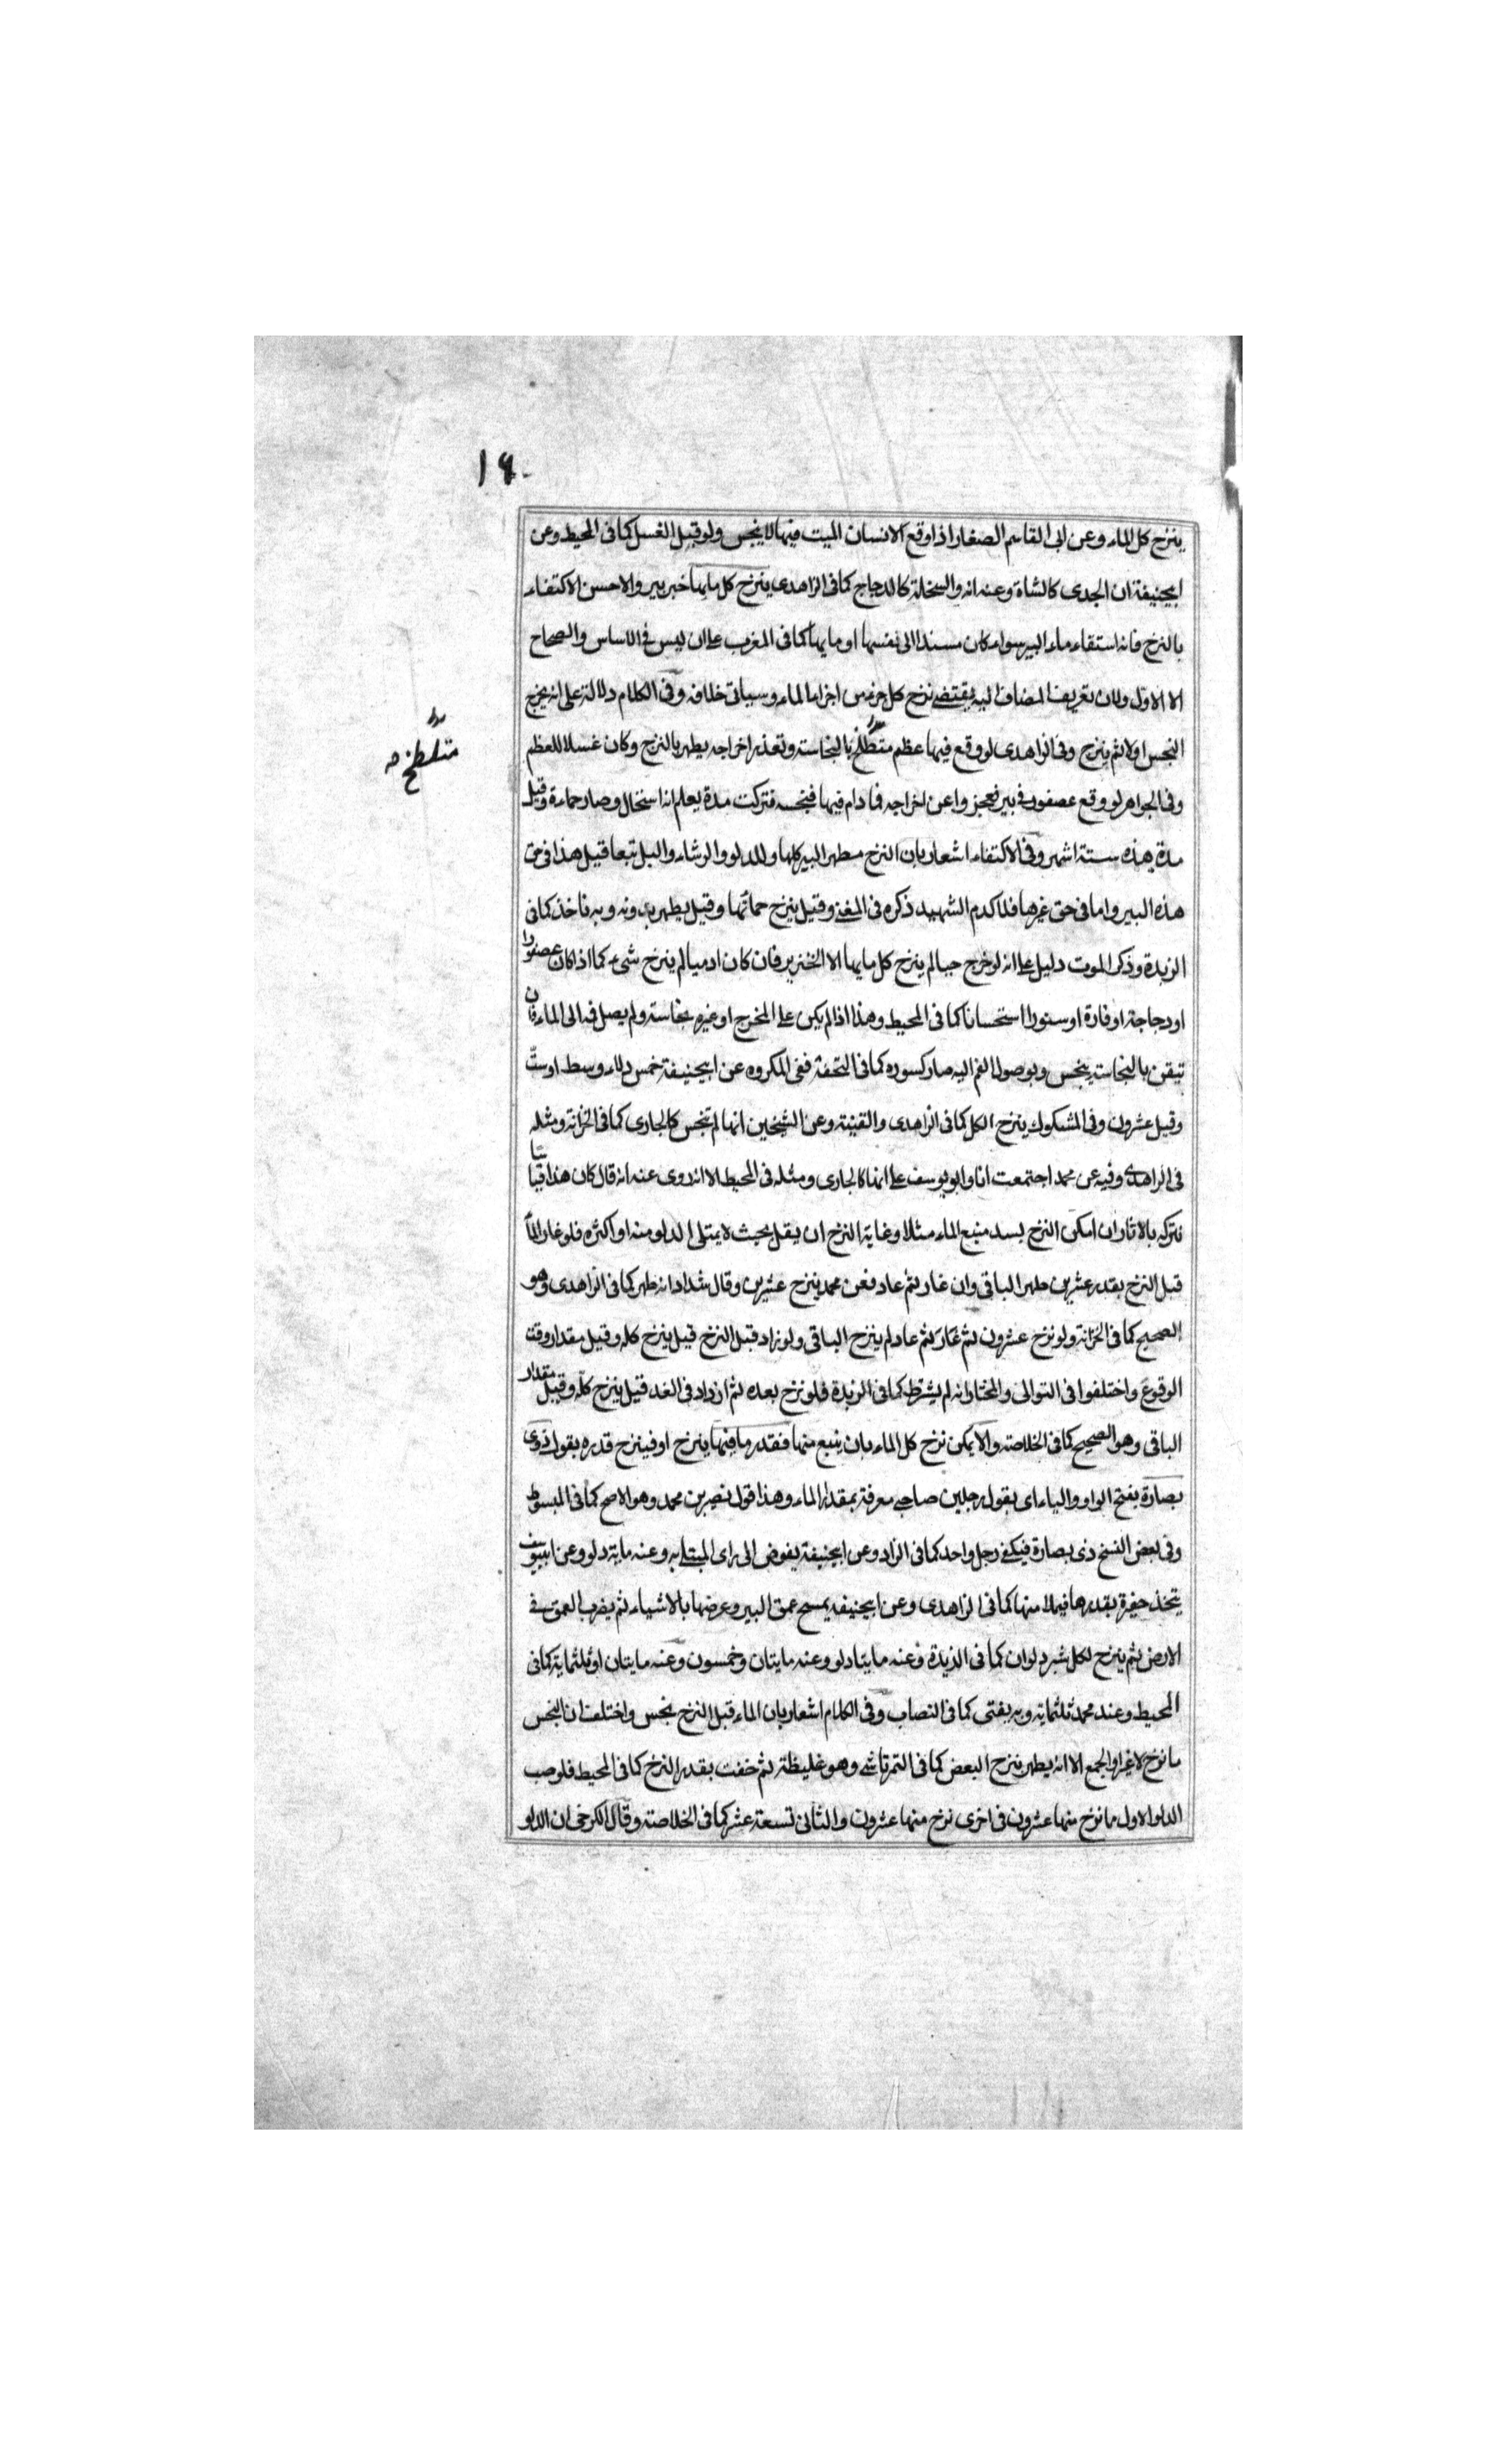 ١٩
ينزح كل الماء وعن ابى القاسم الصغار اذا وقع الانسان الميت فيها لا ينجس ولو قبل الغسل كما فى المحيط وعن
ابيحنيفة ان الجدى كالشاة وعنه انه والسخلة كالدجاج كما فى الزاهدى ينزح كل مايها خبر بير والاحسن الاكتفاء
بالنزح فانه استقاء ماء البير سواء كان مسندا الى نفسها او مايها كما فى المغرب على ان ليس فى الاساس والصحاح
الا الاول ولان تعريف المضاف اليه يقتضى نزح كل جزء من اجزاء الماء وسياتى خلافه وفى الكلام دلالة على انه يخرج
النجس اولا ثم ينزح وفى الزاهدى لو وقع فيها عظم متلطخ بالنجاسة وتعذر اخراجه يطهر بالنزح وكان غسلا للعظم
متلطخ صه
وفى الجواهر لو وقع عصفور فى بير فعجزوا عن اخراجه فما دام فيها فنجسه فتركت مدة يعلم انه استحال وصار حماءة وقيل
مدة هذه ستة اشهر وفى الاكتفاء اشعار بان النزح مطهر البير كلها وللدلو والرشاء والبل تبعا قيل هذا فى حق
هذه البير واما فى حق غيرها فلا كدم الشهيد ذكره فى المغنى وقيل ينزح حماتها وقيل يطهر بدونه وبه ناخذ كما فى
الزبدة وذكر الموت دليل على انه لو خرج حيا لم ينزح كل مايها الا الخنزير فان كان ادميا لم ينزح شىء كما اذا كان عصفورا
او دجاجة او فارة او سنورا استحسانا كما فى المحيط وهذا اذا لم يكن على المخرج او غيره نجاسة ولم يصل فمه الى الماء فان
تيقن بالنجاسة ينجس وبوصول الفم اليه صار كسوره كما فى التحفة ففى المكروه عن ابيحنيفة خمس دلاء وسط او ستّ
وقيل عشرون وفى المشكوك ينزح الكل كما فى الزاهدى والقنية وعن الشيخين انها لم تنجس كالجارى كما فى الخزانة ومثله
فى الزاهدى وفيه عن محمد اجتمعت انا وابو يوسف على انها كالجارى ومثله فى المحيط الا انه روى عنه انه قال كان هذا قياسا
نتركه بالاثار ان امكن النزح بسد منبع الماء مثلا وغاية النزح ان يقل بحيث لا يمتلى الدلو منه او اكثره فلو غار الماء
قبل النزح بقدر عشرين طهر الباقى وان غار ثم عاد فعن محمد ينزح عشرين وقال شداد انه طهر كما فى الزاهدى وهو
الصحيح كما فى الخزانة ولو نزح عشرون ثم غار ثم عاد لم ينزح الباقى ولو زاد قبل النزح قيل ينزح كله وقيل مقدار وقت
الوقوع واختلفوا فى التوالى والمختار انه لم يشترط كما فى الزبدة فلو نزح بعده ثم ازداد فى الغد قيل ينزح كله وقيل مقدار
الباقى وهو الصحيح كما فى الخلاصة والا يمكن نزح كل الماء بان ينبع منها فقدر ما فيها ينزح او فينزح قدره بقول ذوى
بصارة بفتح الواو والياء اى بقول رجلين صاحبى معرفة بمقدار الماء وهذا قول نصير بن محمد وهو الاصح كما فى المبسوط
وفى بعض النسخ ذى بصارة فيكفى رجل واحد كما فى الزاد وعن ابيحنيفة يفوض الى راى المبتلى به وعنه ماية دلو وعن ابييوسف
يتخذ حفيرة بقدرها فيملا منها كما فى الزاهدى وعن ابيحنيفه يمسح عمق البير وعرضها بالاشياء ثم يضرب العمق فى
الارض ثم ينزح لكل شبر دلوان كما فى الزبدة وعنه مايتا دلو وعنه مايتان وخمسون وعنه مايتان او ثلثماية كما فى
المحيط وعند محمد ثلثماية وبه يفتى كما فى النصاب وفى الكلام اشعار بان الماء قبل النزح نجس واختلف ان النجس
ما نزح لا غير او الجمع الا انه يطهر بنزح البعض كما فى التمرتاشى وهو غليظة ثم خفت بقدر النزح كما فى المحيط فلو صب
الدلو الاول ما نزح منها عشرون فى اخرى نزح منها عشرون والثانى تسعة عشر كما فى الخلاصة وقال الكرخى ان الدلو